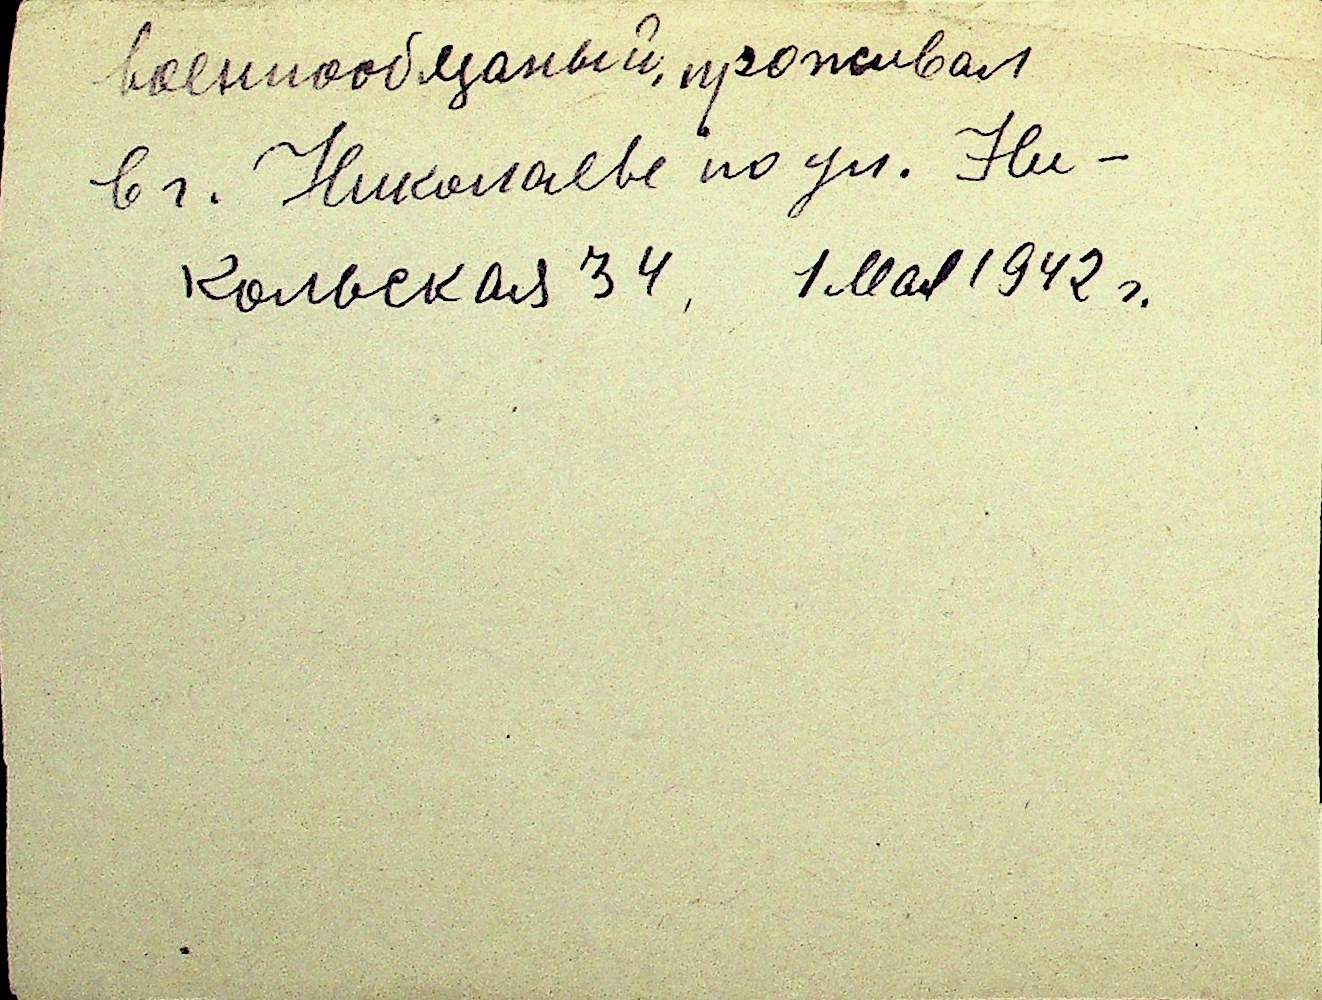 военнообязаный, проживал
в г. Николаеве по ул. Ни-
кольская 34, 1 мая 1942 г.